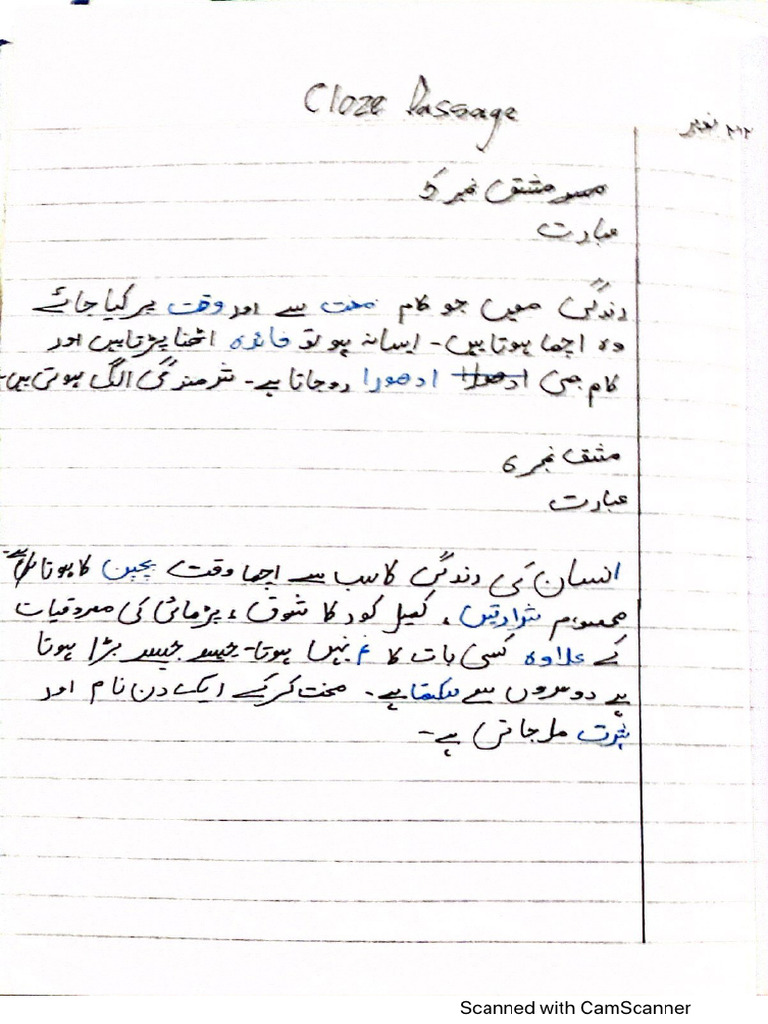 Cloze Passage
۲۲ نومبر
مشق نمبر 5
عبارت
زندگی میں جو کام محنت سے اور وقت پر کیا جائے
وہ اچھا ہوتا ہیں۔ ایسا نہ ہو تو فائدہ اٹھنا پڑتا ہیں اور
کام بھی ادھورا ادھورا رہ جاتا ہے۔ شرمندگی الگ ہوتی ہیں۔
مشق نمبر 6
عبارت
انسان کی زندگی کا سب سے اچھا وقت بچپن کا ہوتا ہے
معصوم شرارتیں، کھیل کود کا شوق، پڑھائی کی مصروفیات
کے علاوہ کسی بات کا غم نہیں ہوتا۔ جیسے جیسے بڑا ہوتا
ہے دوسروں سے سیکھتا ہے۔ محنت کر کے ایک دن نام اور
شہرت مل جاتی ہے۔
Scanned with CamScanner